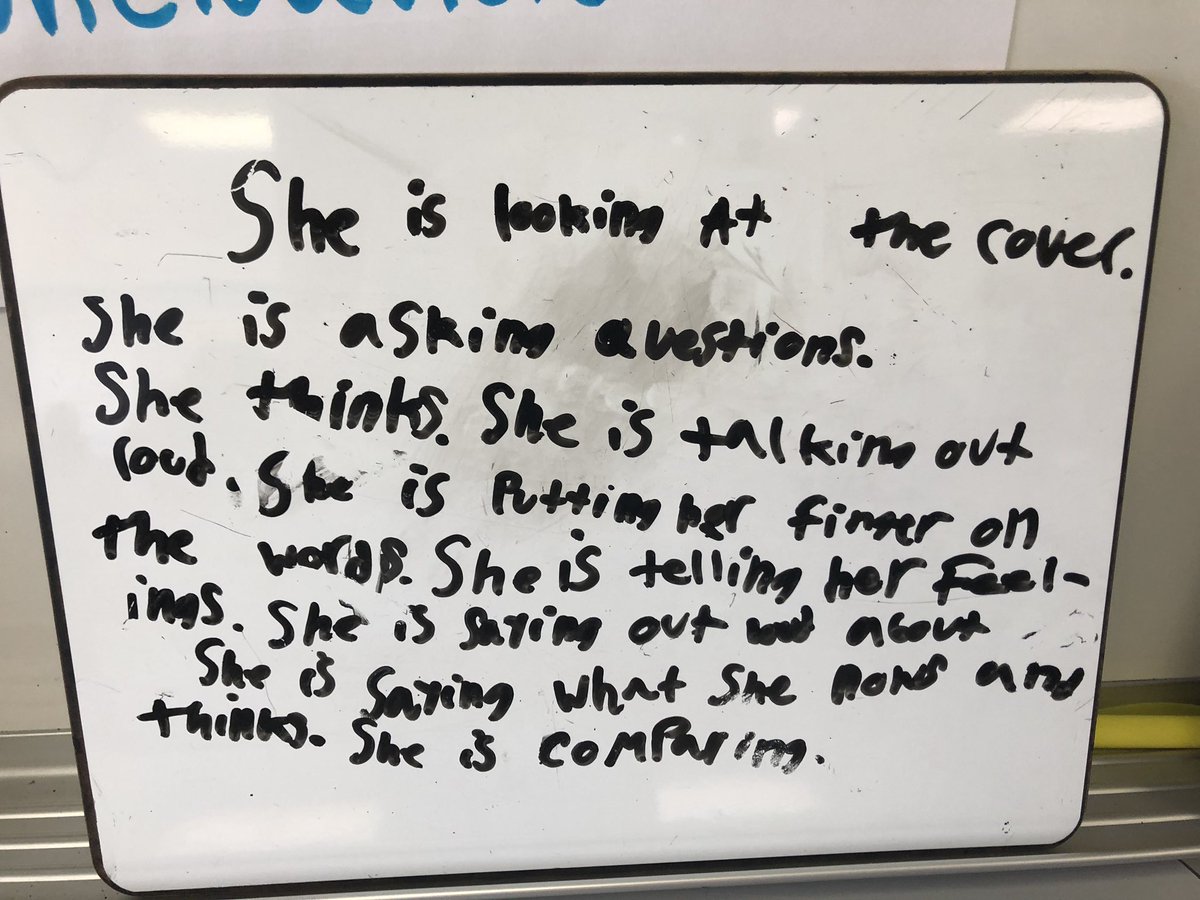 She is looking At the cover.
She is asking questions.
She thinks. She is talking out
loud. She is putting her finger on
the words. She is telling her Feel-
ings. She is saying out loud about
She is saying what she nows and
thinks. She is comparing.